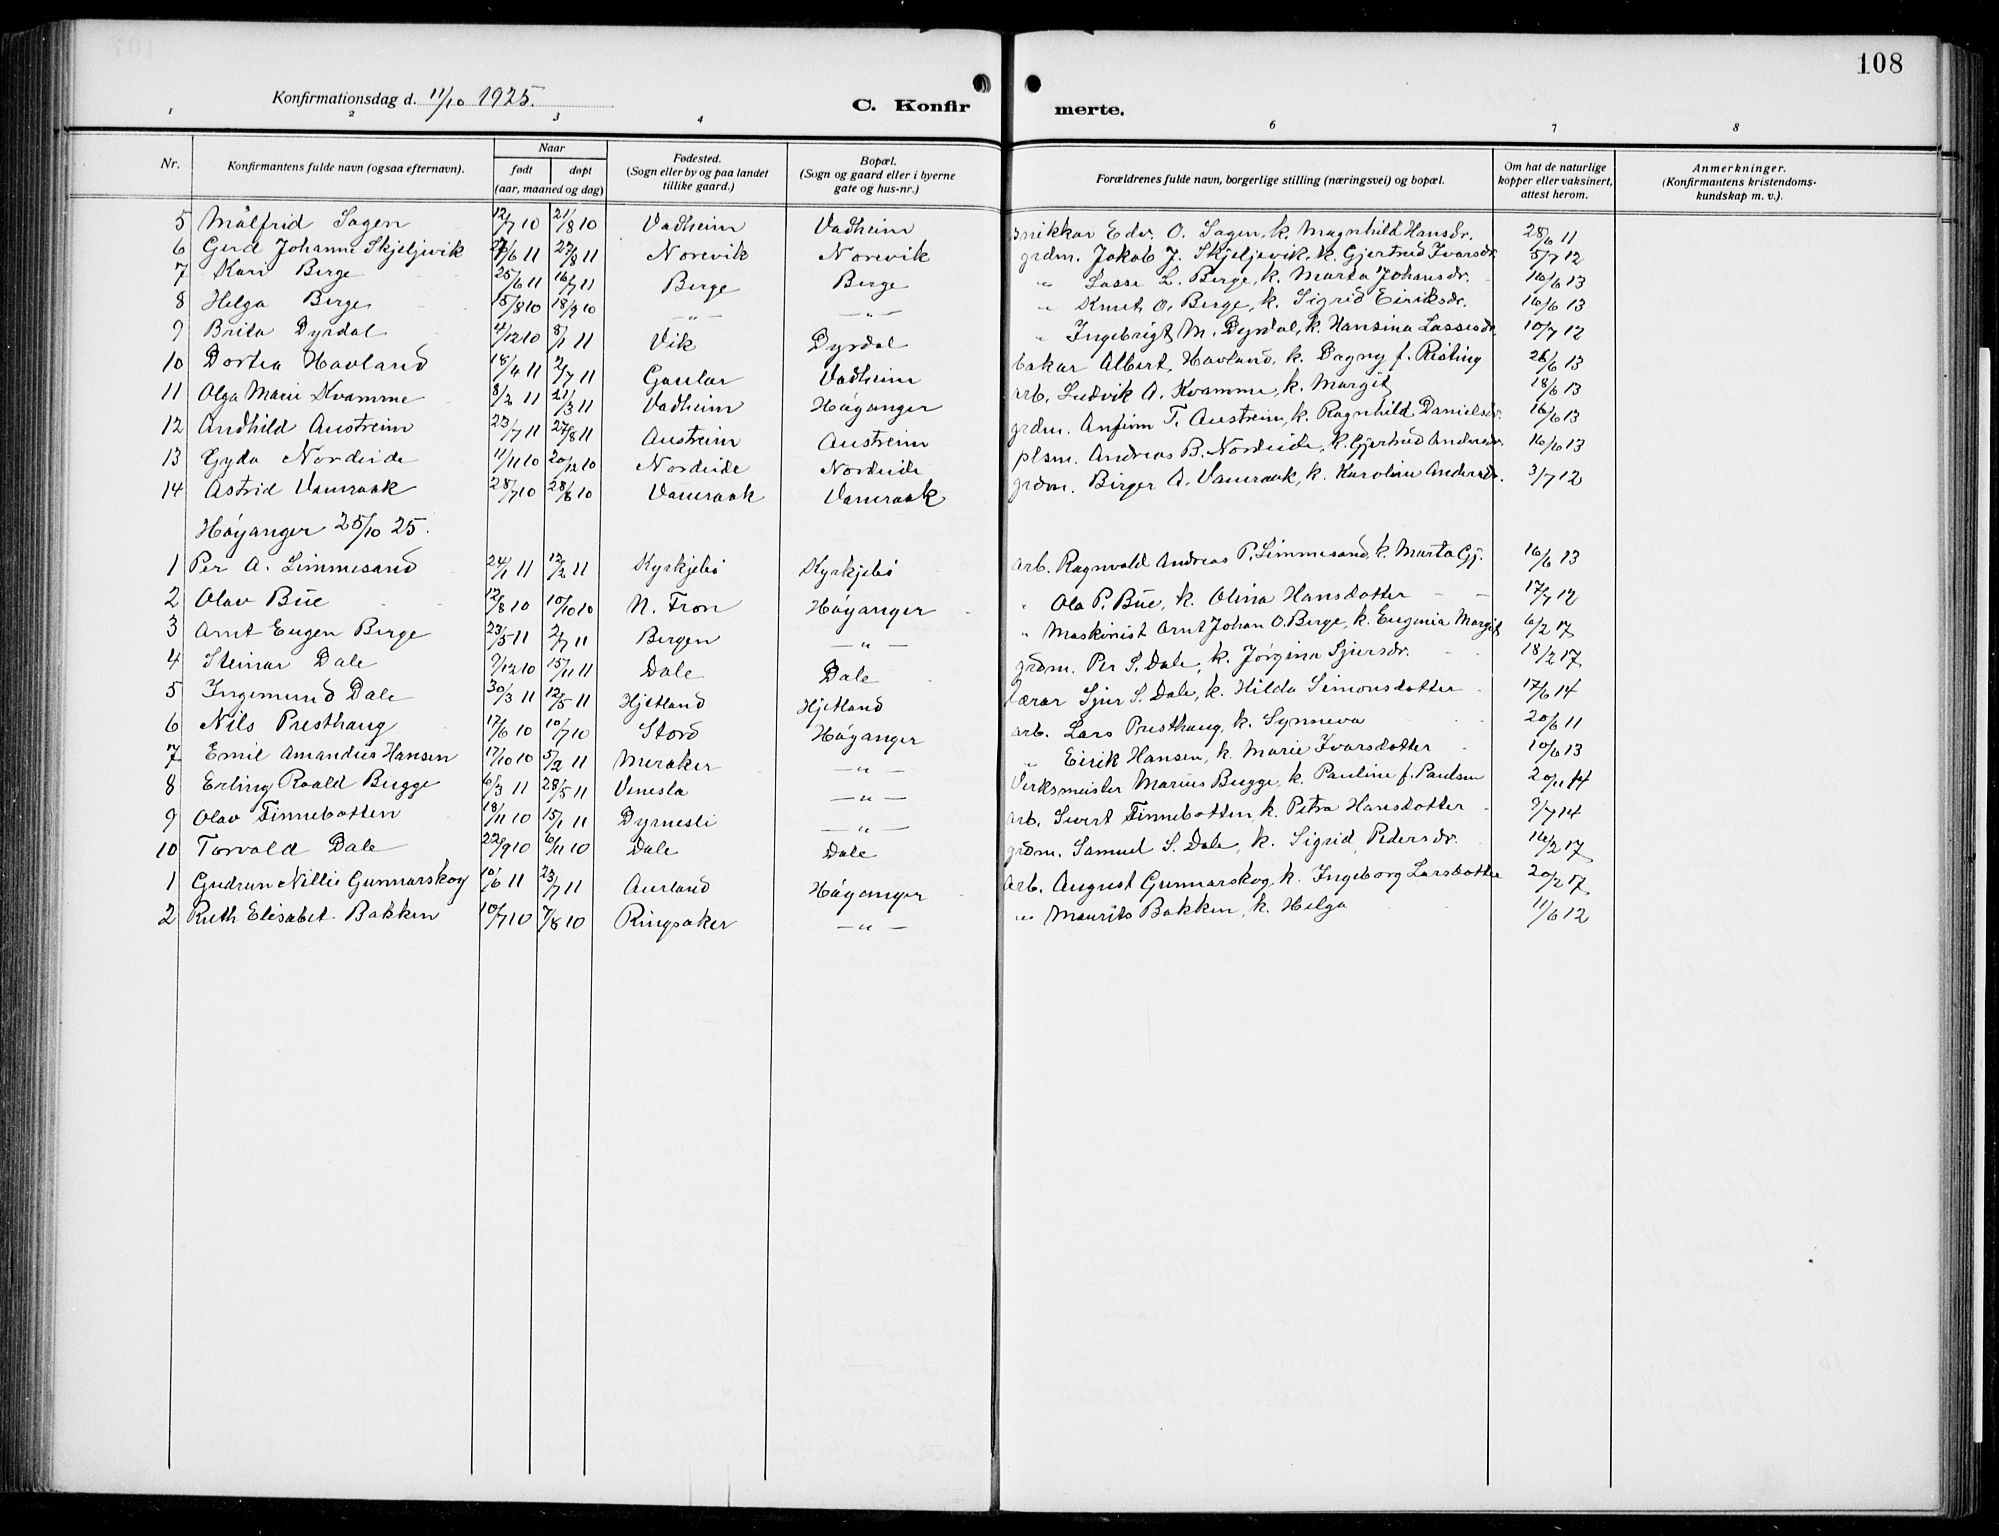 108
Konfirmationsdag d. 11/10 1925.
C. Konfir merte.
1 2 3 4 6 7 8
Nr. Konfirmantens fulde navn (ogsaa efternavn). Naar født døpt (aar, maaned og dag) Fødested. (Sogn eller by og paa landet tillike gaard.) Bopæl. (Sogn og gaard eller i byerne gate og hus-nr.) Forældrenes fulde navn, borgerlige stilling (næringsvei) og bopæl. Om hat de naturlige kopper eller vaksinert, attest herom. Anmerkninger. (Konfirmantens kristendomskundskap m. v.).
5 Målfrid Sagen 12/7 10 21/8 10 Vadheim Vadheim snikkar Edv. O. Sagen, k. Magnhild Hansdr. 28/6 11
6 Gerd Johanne Skjeljevik 27/6 11 27/8 11 Norevik Norevik grdm. Jakob J. Skjeljevik, k. Gjertrud Ivarsdr. 5/7 12
7 Kari Berge 25/6 11 16/7 11 Berge Berge " Lasse L. Berge, k. Marta Johansdr. 16/6 13
8 Helga Berge 15/8 10 18/9 10 — " — — " — " Knut O. Berge, k. Sigrid Eiriksdr. 16/6 13
9 Brita Dyrdal 4/12 10 8/1 11 Vik Dyrdal " Ingebrigt M. Dyrdal, k. Hansina Lassesdr. 10/7 12
10 Dortea Havland 18/4 11 2/7 11 Gaular Vadheim bakar Albert Havland, k. Dagny f. Risting 26/6 13
11 Olga Marie Kvamme 8/2 11 21/3 11 Vadheim Høyanger arb. Ludvik A. Kvamme, k. Margit 18/6 13
12 Andhild Austreim 23/7 11 27/8 11 Austreim Austreim grdm. Anfinn T. Austreim, k. Ragnhild Danielsdr. 16/6 13
13 Gyda Nordeide 11/11 10 20/12 10 Nordeide Nordeide plsm. Andreas B. Nordeide, k. Gjertrud Andersdr. 16/6 13
14 Astrid Vamraak 28/7 10 28/8 10 Vamraak Vamraak grdm. Birger A. Vamraak, k. Karoline Andersdr. 3/7 12
Høyanger 25/10 25.
1 Per A. Limmesand 24/1 11 12/2 11 Kyrkjebø Kyrkjebø arb. Ragnvald Andreas P. Limmesand, k. Marta Gj. 16/6 13
2 Olav Büe 12/8 10 10/10 10 N. Fron Høyanger " Ola P. Büe, k. Olina Hansdotter 17/7 12
3 Arnt Eugen Berge 23/5 11 2/7 11 Bergen — " — " Maskinist Arnt Johan O. Berge, k. Eugenia Margit 6/2 17
4 Steinar Dale 9/12 10 15/11 11 Dale Dale grdm. Per S. Dale, k. Jørgina Sjursdr. 18/2 17
5 Ingemund Dale 30/3 11 12/5 11 Hjetland Hjetland lærar Sjur S. Dale, k. Hilda Simonsdotter 17/6 14
6 Nils Presthaug 17/6 10 10/7 10 Stord Høyanger arb. Lars Presthaug, k. Synneva 20/6 11
7 Emil Amandus Hansen 17/10 10 5/2 11 Meraker — " — " Eirik Hansen, k. Marie Ivarsdotter 10/6 13
8 Erling Roald Bugge 6/3 11 28/5 11 Venesla — " — Verksmeister Marius Bugge, k. Pauline f. Paulsen 20/11 14
9 Olav Finnebotten 18/11 10 15/1 11 Dyrnesli — " — arb. Sivert Finnebotten, k. Petra Hansdotter 9/7 14
10 Torvald Dale 22/9 10 6/11 10 Dale Dale grdm. Samuel S. Dale, k. Sigrid Pedersdr. 16/2 17
1 Gudrun Nillie Gunnarskog 10/6 11 23/7 11 Aurland Høyanger Arb. August Gunnarskog, k. Ingeborg Larsdotter 20/2 17
2 Ruth Elisabet Bakken 10/7 10 7/8 10 Ringsaker — " — " Maurits Bakken, k. Helga 11/6 12